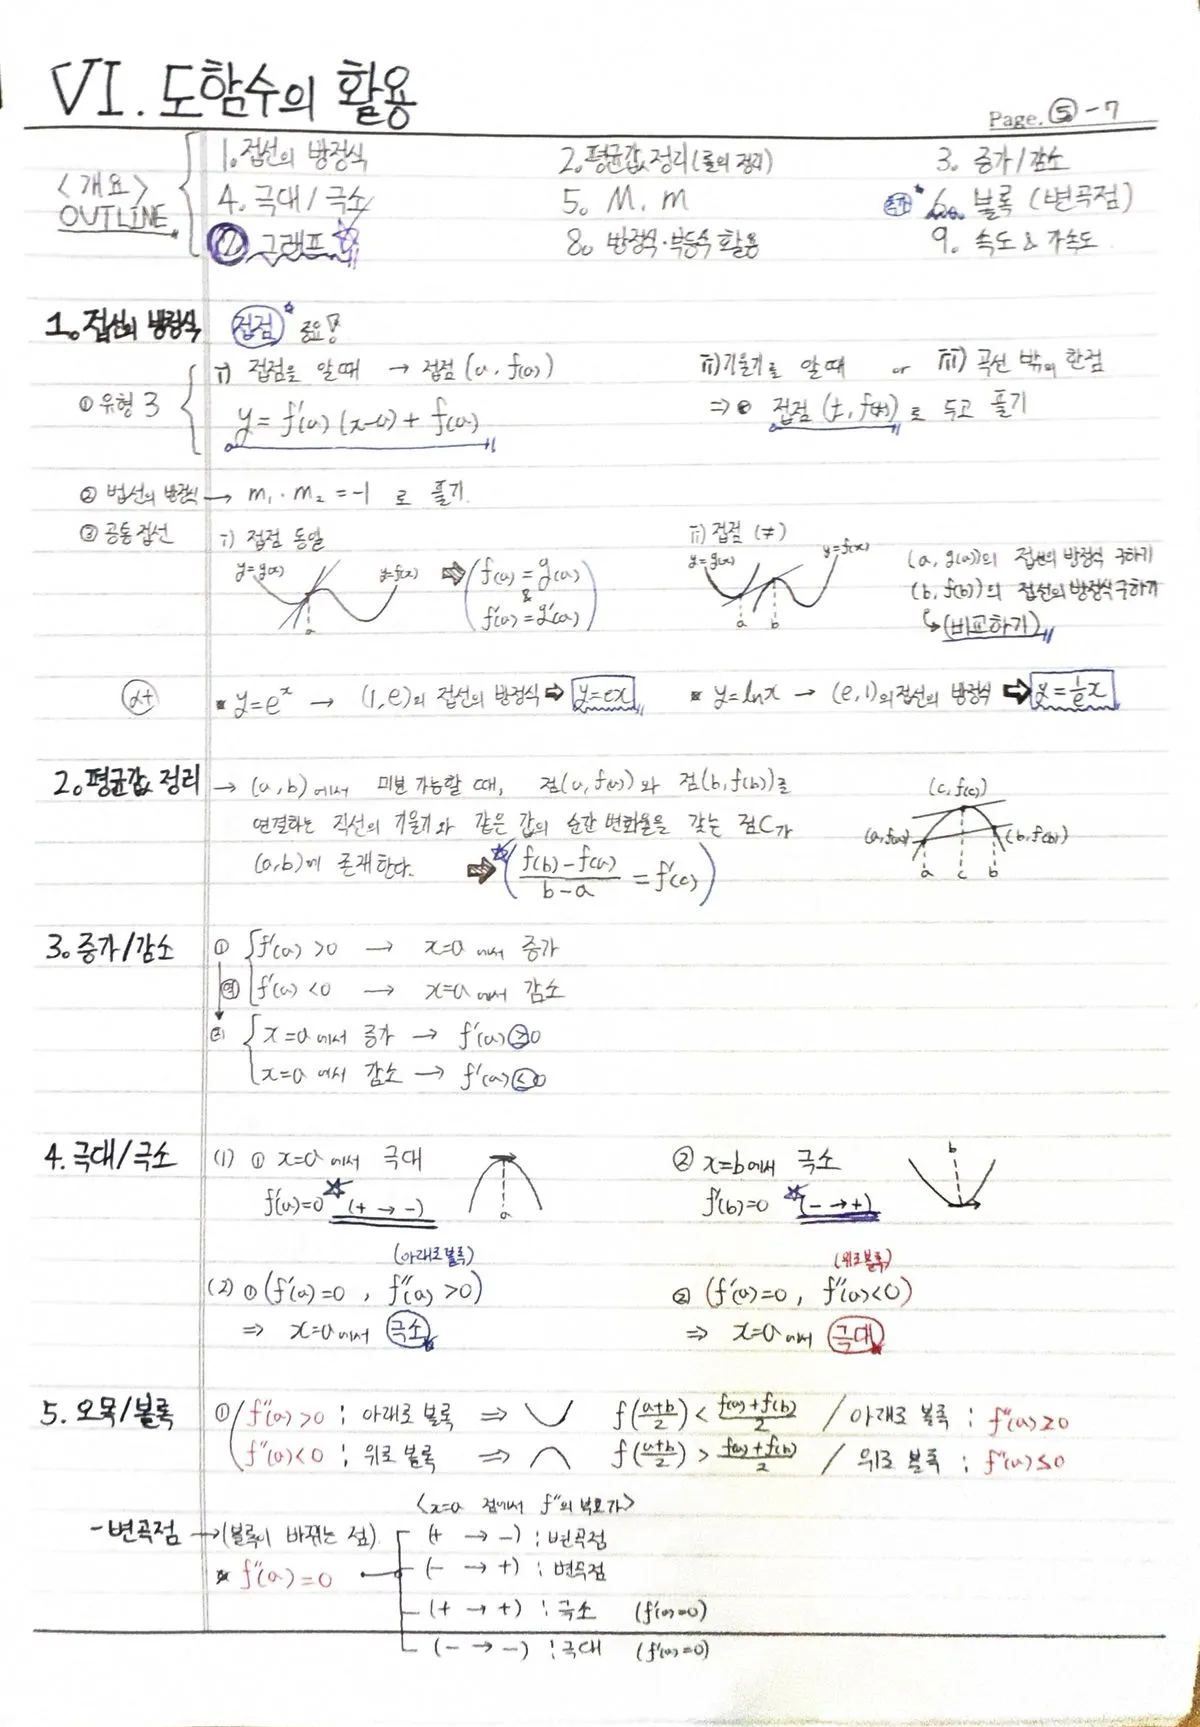 VI. 도함수의 활용
Page. ⑤-7
<개요> OUTLINE
1. 접선의 방정식 2. 평균값 정리 (롤의 정리) 3. 증가/감소
4. 극대/극소 5. M, m 6. 볼록 (변곡점)
7. 그래프 8. 방정식·부등식 활용 9. 속도 & 가속도
1. 접선의 방정식 접점 중요!
① 유형 3
i) 접점을 알 때 → 접점 (a, f(a)) ii) 기울기를 알 때 or iii) 곡선 밖의 한점
y = f'(a)(x-a) + f(a) ⇒ 접점 (t, f(t))로 두고 풀기
② 법선의 방정식 → m₁·m₂ = -1 로 풀기
③ 공통접선 i) 접점 동일 ii) 접점 (≠)
y=g(x) y=f(x) ⇨ f(a) = g(a) & f'(a) = g'(a)
a
y=g(x) y=f(x) a b
(a, g(a))의 접선의 방정식 구하기
(b, f(b))의 접선의 방정식 구하기
↳ (비교하기)
α+ ※ y=eˣ → (1, e)의 접선의 방정식 ⇨ y=ex ※ y=lnx → (e, 1)의 접선의 방정식 ⇨ y=1/e x
2. 평균값 정리 → (a, b)에서 미분 가능할 때, 점(a, f(a))와 점(b, f(b))를
연결하는 직선의 기울기와 같은 값의 순간 변화율을 갖는 점C가
(a, b)에 존재한다. ⇨ (f(b)-f(a))/(b-a) = f'(c)
(c, f(c))
(a, f(a)) (b, f(b))
a c b
3. 증가/감소 ① f'(a) >0 → x=a 에서 증가
역 f'(a) <0 → x=a 에서 감소
② x=a 에서 증가 → f'(a) ≥ 0
x=a 에서 감소 → f'(a) ≤ 0
4. 극대/극소 (1) ① x=a 에서 극대 ② x=b에서 극소
f'(a)=0 (+ → -) a f'(b)=0 (- → +) b
(아래로 볼록) (위로 볼록)
(2) ① (f'(a)=0, f''(a) >0) ② (f'(a)=0, f''(a)<0)
⇒ x=a 에서 극소 ⇒ x=a 에서 극대
5. 오목/볼록 ① f''(a) >0 ; 아래로 볼록 ⇒ f((a+b)/2) < (f(a)+f(b))/2 / 아래로 볼록 ; f''(a) ≥0
f''(a)<0 ; 위로 볼록 ⇒ f((a+b)/2) > (f(a)+f(b))/2 / 위로 볼록 ; f''(a) ≤0
<x=a 점에서 f''의 부호가>
-변곡점 → (볼록이 바뀌는 점) (+ → -) ; 변곡점
※ f''(a)=0 (- → +) ; 변곡점
(+ → +) ; 극소 (f'(a)=0)
(- → -) ; 극대 (f'(a)=0)